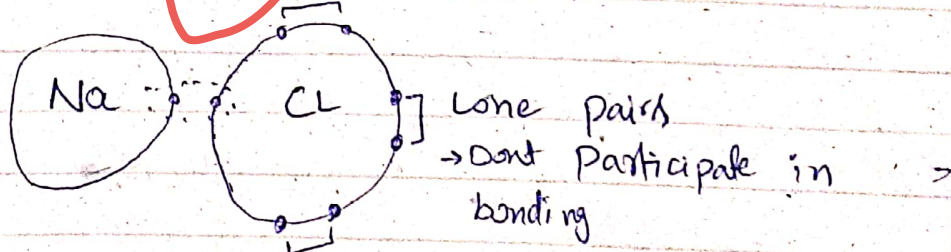 Na
CL
Lone pairs
→Dont Participate in
bonding